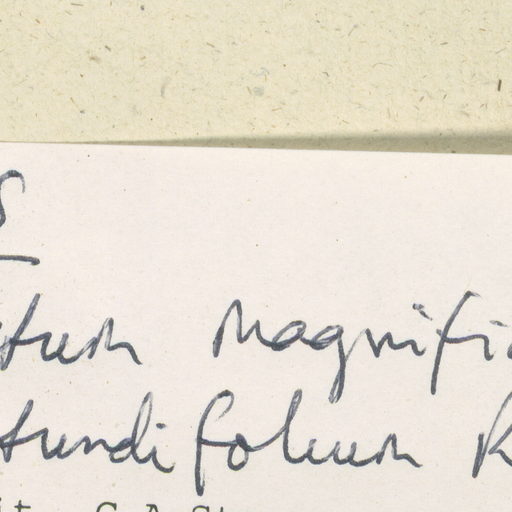 S
tum magnifi
tundifolium R
C.A. St